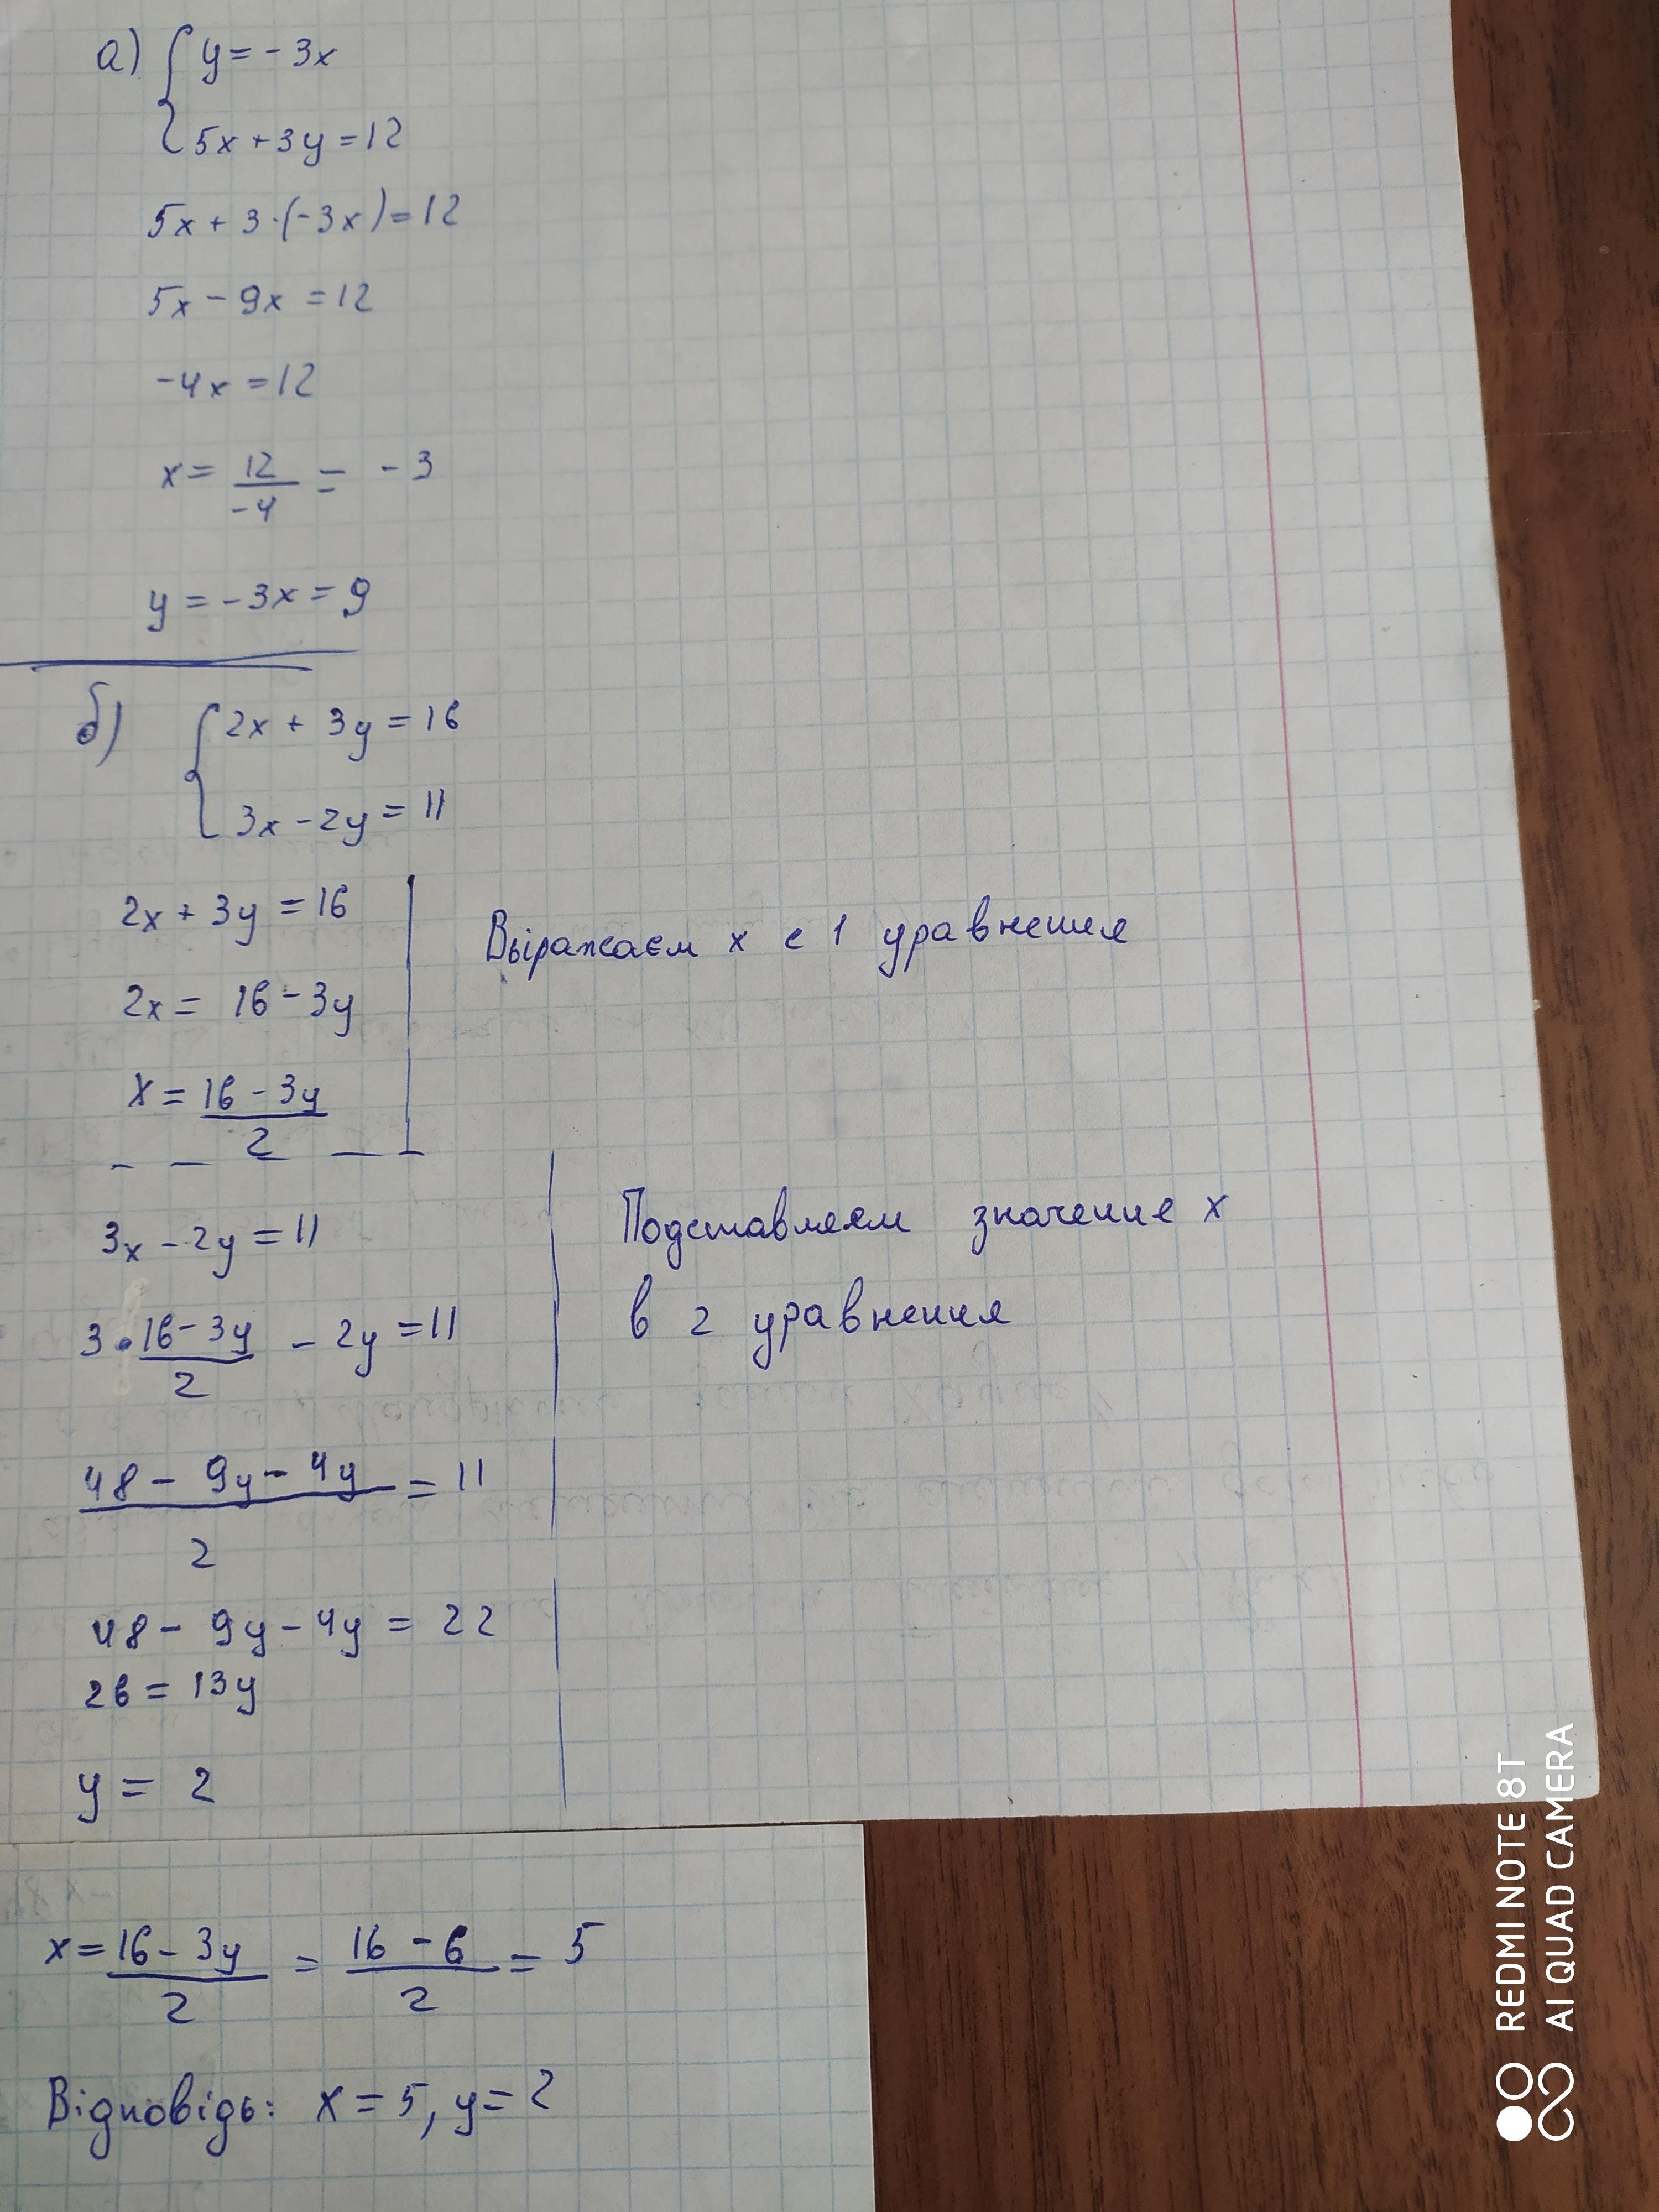 а) { y = -3x
5x + 3y = 12
5x + 3·(-3x) = 12
5x - 9x = 12
-4x = 12
x = 12/-4 = -3
y = -3x = 9
б) { 2x + 3y = 16
3x - 2y = 11
2x + 3y = 16
Выражаем x с 1 уравнения
2x = 16 - 3y
x = 16 - 3y / 2
3x - 2y = 11
Подставляем значение x
в 2 уравнения
3 · 16 - 3y / 2 - 2y = 11
48 - 9y - 4y / 2 = 11
48 - 9y - 4y = 22
26 = 13y
y = 2
x = 16 - 3y / 2 = 16 - 6 / 2 = 5
Відповідь: x = 5, y = 2
REDMI NOTE 8T
AI QUAD CAMERA